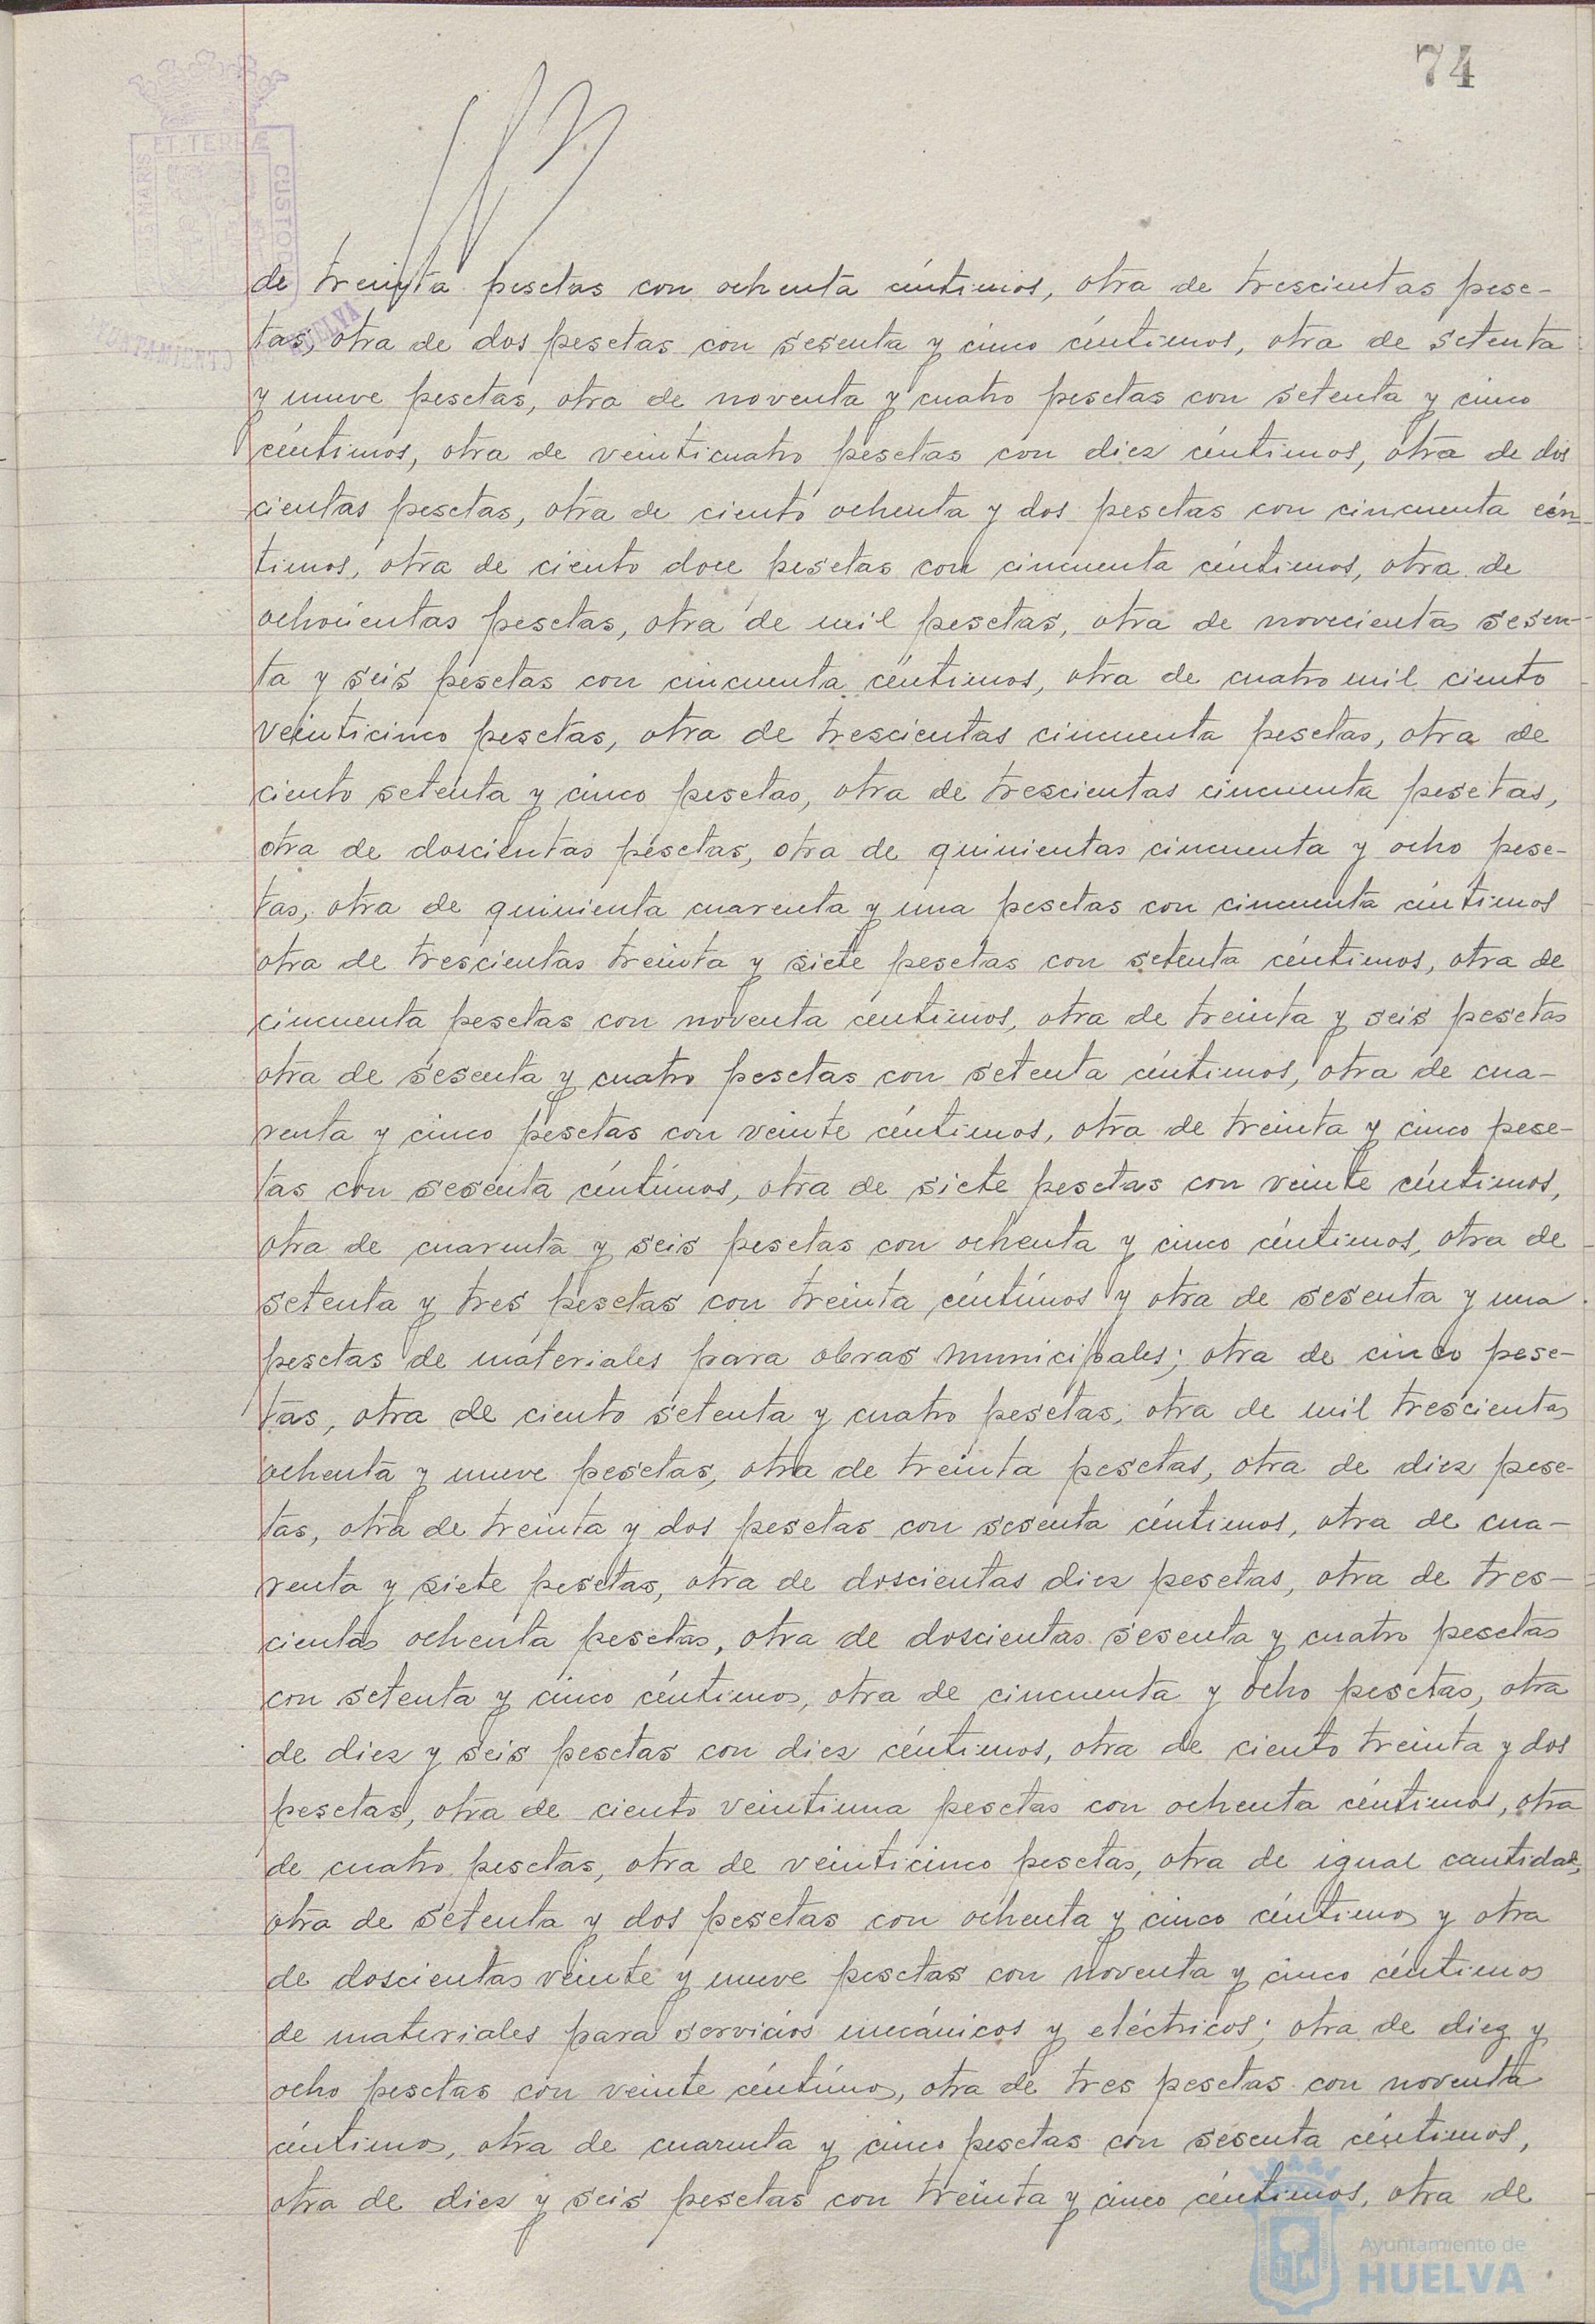 74
ET TERRÆ
S MARIS
CUSTOD
AYUNTAMIENTO HUELVA
de treinta pesetas con ochenta céntimos, otra de trescientas pese-
tas, otra de dos pesetas con sesenta y cinco céntimos, otra de setenta
y nueve pesetas, otra de noventa y cuatro pesetas con setenta y cinco
céntimos, otra de veinticuatro pesetas con diez céntimos, otra de dos
cientas pesetas, otra de ciento ochenta y dos pesetas con cincuenta cén-
timos, otra de ciento doce pesetas con cincuenta céntimos, otra de
ochocientas pesetas, otra de mil pesetas, otra de novecientas sesen-
ta y seis pesetas con cincuenta céntimos, otra de cuatro mil ciento
veinticinco pesetas, otra de trescientas cincuenta pesetas, otra de
ciento setenta y cinco pesetas, otra de trescientas cincuenta pesetas,
otra de doscientas pesetas, otra de quinientas cincuenta y ocho pese-
tas, otra de quinienta cuarenta y una pesetas con cincuenta céntimos
otra de trescientas treinta y siete pesetas con setenta céntimos, otra de
cincuenta pesetas con noventa céntimos, otra de treinta y seis pesetas
otra de sesenta y cuatro pesetas con setenta céntimos, otra de cua-
renta y cinco pesetas con veinte céntimos, otra de treinta y cinco pese-
tas con sesenta céntimos, otra de siete pesetas con veinte céntimos,
otra de cuarenta y seis pesetas con ochenta y cinco céntimos, otra de
setenta y tres pesetas con treinta céntimos y otra de sesenta y una
pesetas de materiales para obras municipales; otra de cinco pese-
tas, otra de ciento setenta y cuatro pesetas, otra de mil trescientas
ochenta y nueve pesetas, otra de treinta pesetas, otra de diez pese-
tas, otra de treinta y dos pesetas con sesenta céntimos, otra de cua-
renta y siete pesetas, otra de doscientas diez pesetas, otra de tres-
cientas ochenta pesetas, otra de doscientas sesenta y cuatro pesetas
con setenta y cinco céntimos, otra de cincuenta y ocho pesetas, otra
de diez y seis pesetas con diez céntimos, otra de ciento treinta y dos
pesetas, otra de ciento veintiuna pesetas con ochenta céntimos, otra
de cuatro pesetas, otra de veinticinco pesetas, otra de igual cantidad,
otra de setenta y dos pesetas con ochenta y cinco céntimos y otra
de doscientas veinte y nueve pesetas con noventa y cinco céntimos
de materiales para servicios mecánicos y eléctricos; otra de diez y
ocho pesetas con veinte céntimos, otra de tres pesetas con noventa
céntimos, otra de cuarenta y cinco pesetas con sesenta céntimos,
otra de diez y seis pesetas con treinta y cinco céntimos, otra de
Ayuntamiento de
HUELVA